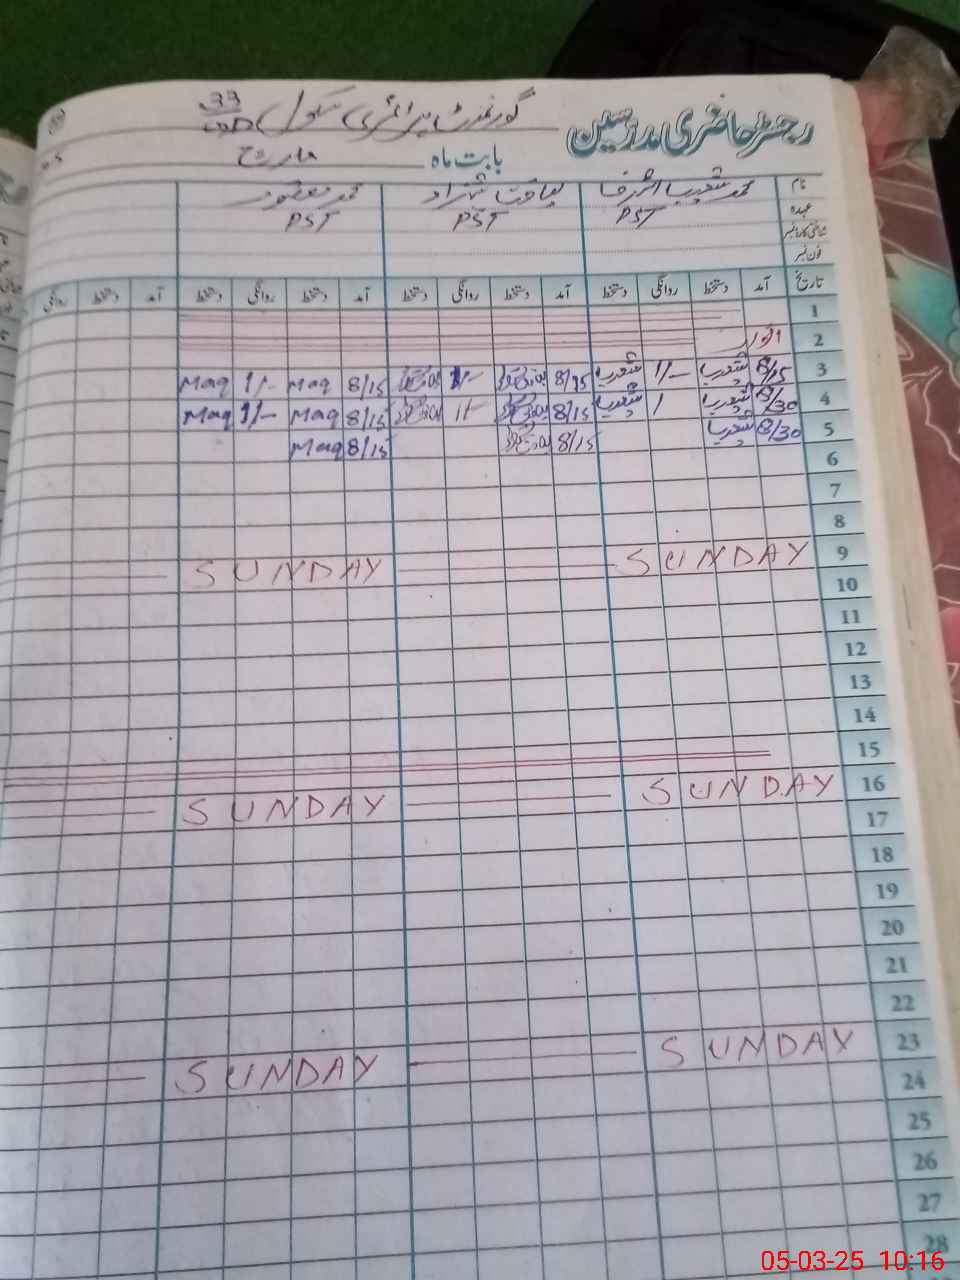 رجسٹر حاضری مدرسین گورنمنٹ پرائمری سکول 33
بابت ماہ مارچ
نام محمد شعیب اشرف لیاقت شہزاد محمد
عہدہ PST PST PST
شناختی کارڈ نمبر
فون نمبر
تاریخ آمد دستخط روانگی دستخط آمد دستخط روانگی دستخط آمد دستخط روانگی دستخط آمد دستخط روانگی
1
2 اتوار
3 8/15 شعیب 1/- شعیب 8/15 1/- 8/15 Maq 1/- Maq
4 8/30 شعیب 1 شعیب 8/15 1/- 8/15 Maq 1/- Maq
5 8/30 شعیب 8/15 8/15 Maq
6
7
8
9 SUNDAY SUNDAY
10
11
12
13
14
15
16 SUNDAY SUNDAY
17
18
19
20
21
22
23 SUNDAY SUNDAY
24
25
26
27
28
05-03-25 10:16